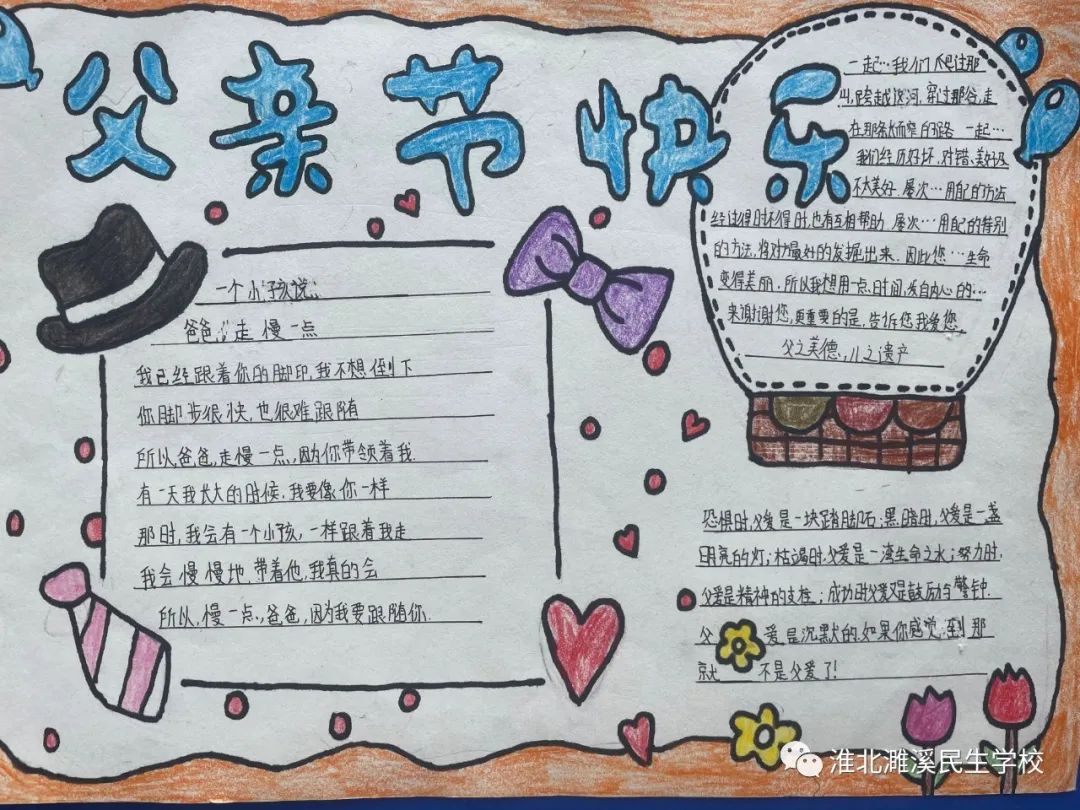 父亲节快乐
一个小孩说:
爸爸,走慢一点
我已经跟着你的脚印,我不想倒下
你脚步很快,也很难跟随
所以,爸爸,走慢一点,因为你带领着我.
有一天我长大的时候,我要像你一样
那时,我会有一个小孩,一样跟着我走
我会慢慢地,带着他,我真的会
所以,慢一点,爸爸,因为我要跟随你.
一起…我们爬过那
山,跨越这河,穿过那谷,走
在那条长而窄的路 一起…
我们经历好坏,对错、美好及
不大美好 屡次…用自己的方法
经过得时坏得时,也有互相帮助 屡次…用自己的特别
的方法,将对方最好的发掘出来. 因此您…生命
变得美丽.所以我想用一点时间,发自内心的…
来谢谢您,更重要的是,告诉您我爱您.
父之美德,儿之遗产
恐惧时,父爱是一块踏脚石;黑暗时,父爱是一盏
明亮的灯;枯竭时,父爱是一湾生命之水;努力时,
父爱是精神的支柱;成功时父爱又是鼓励与警钟.
父 爱是沉默的.如果你感觉到那
就 不是父爱了!
淮北濉溪民生学校